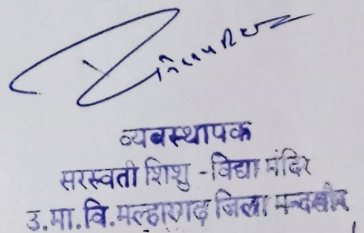 व्यवस्थापक
सरस्वती शिशु - विद्या मंदिर
उ.मा.वि.मल्हारगढ़ जिला मन्दसौर